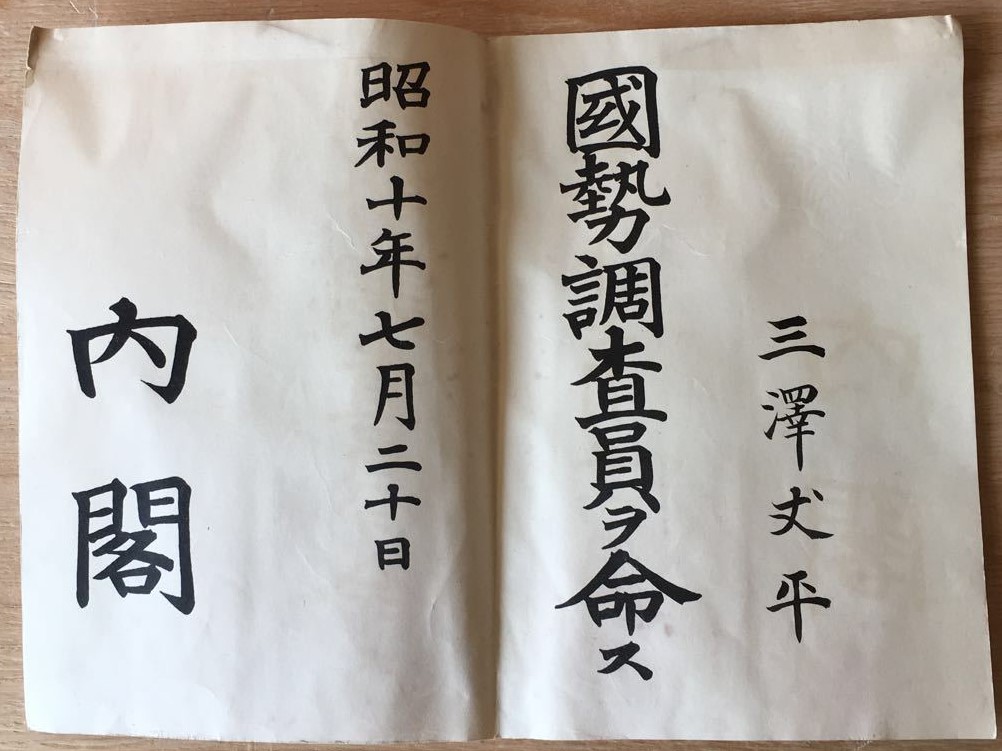 三澤丈平
國勢調査員ヲ命ス
昭和十年七月二十日
內閣